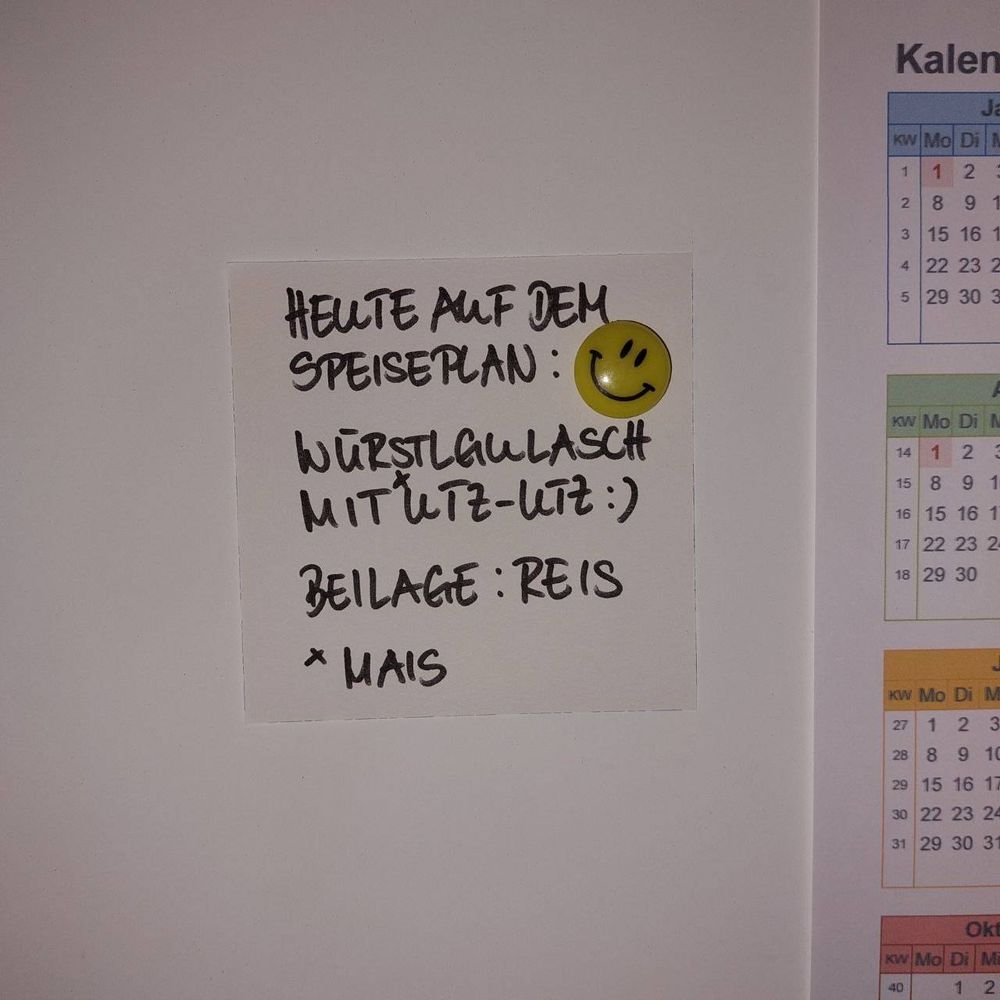 HEUTE AUF DEM
SPEISEPLAN:
WÜRSTLGULASCH
MIT *UTZ-UTZ:)
BEILAGE: REIS
* MAIS
Kalen
Ja
KW Mo Di M
1 1 2 3
2 8 9 1
3 15 16 1
4 22 23 2
5 29 30 3
A
KW Mo Di M
14 1 2 3
15 8 9 10
16 15 16 17
17 22 23 24
18 29 30
J
KW Mo Di M
27 1 2 3
28 8 9 10
29 15 16 17
30 22 23 24
31 29 30 31
Okt
KW Mo Di Mi
40 1 2